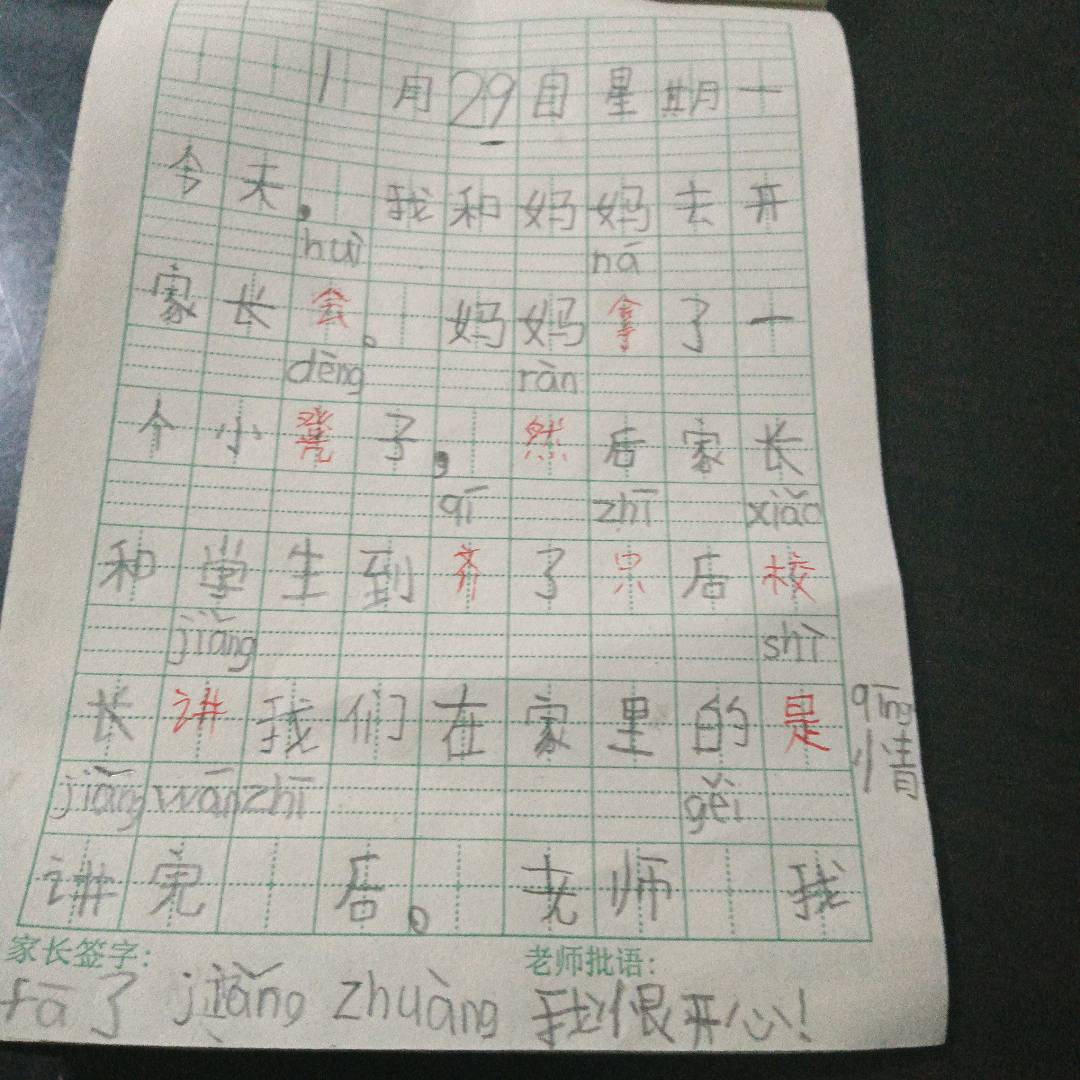 1月29日星期一
今天,我和妈妈去开
huì ná
家长会。妈妈拿了一
dèng ràn
个小凳子,然后家长
qī zhī xiǎo
和学生到齐了只后校
jiǎng shī
长讲我们在家里的是
qīng
情
jiǎng wán zhī gěi
讲完 后。老师 我
家长签字:
老师批语:
fā了 jiǎng zhuàng 我很开心!